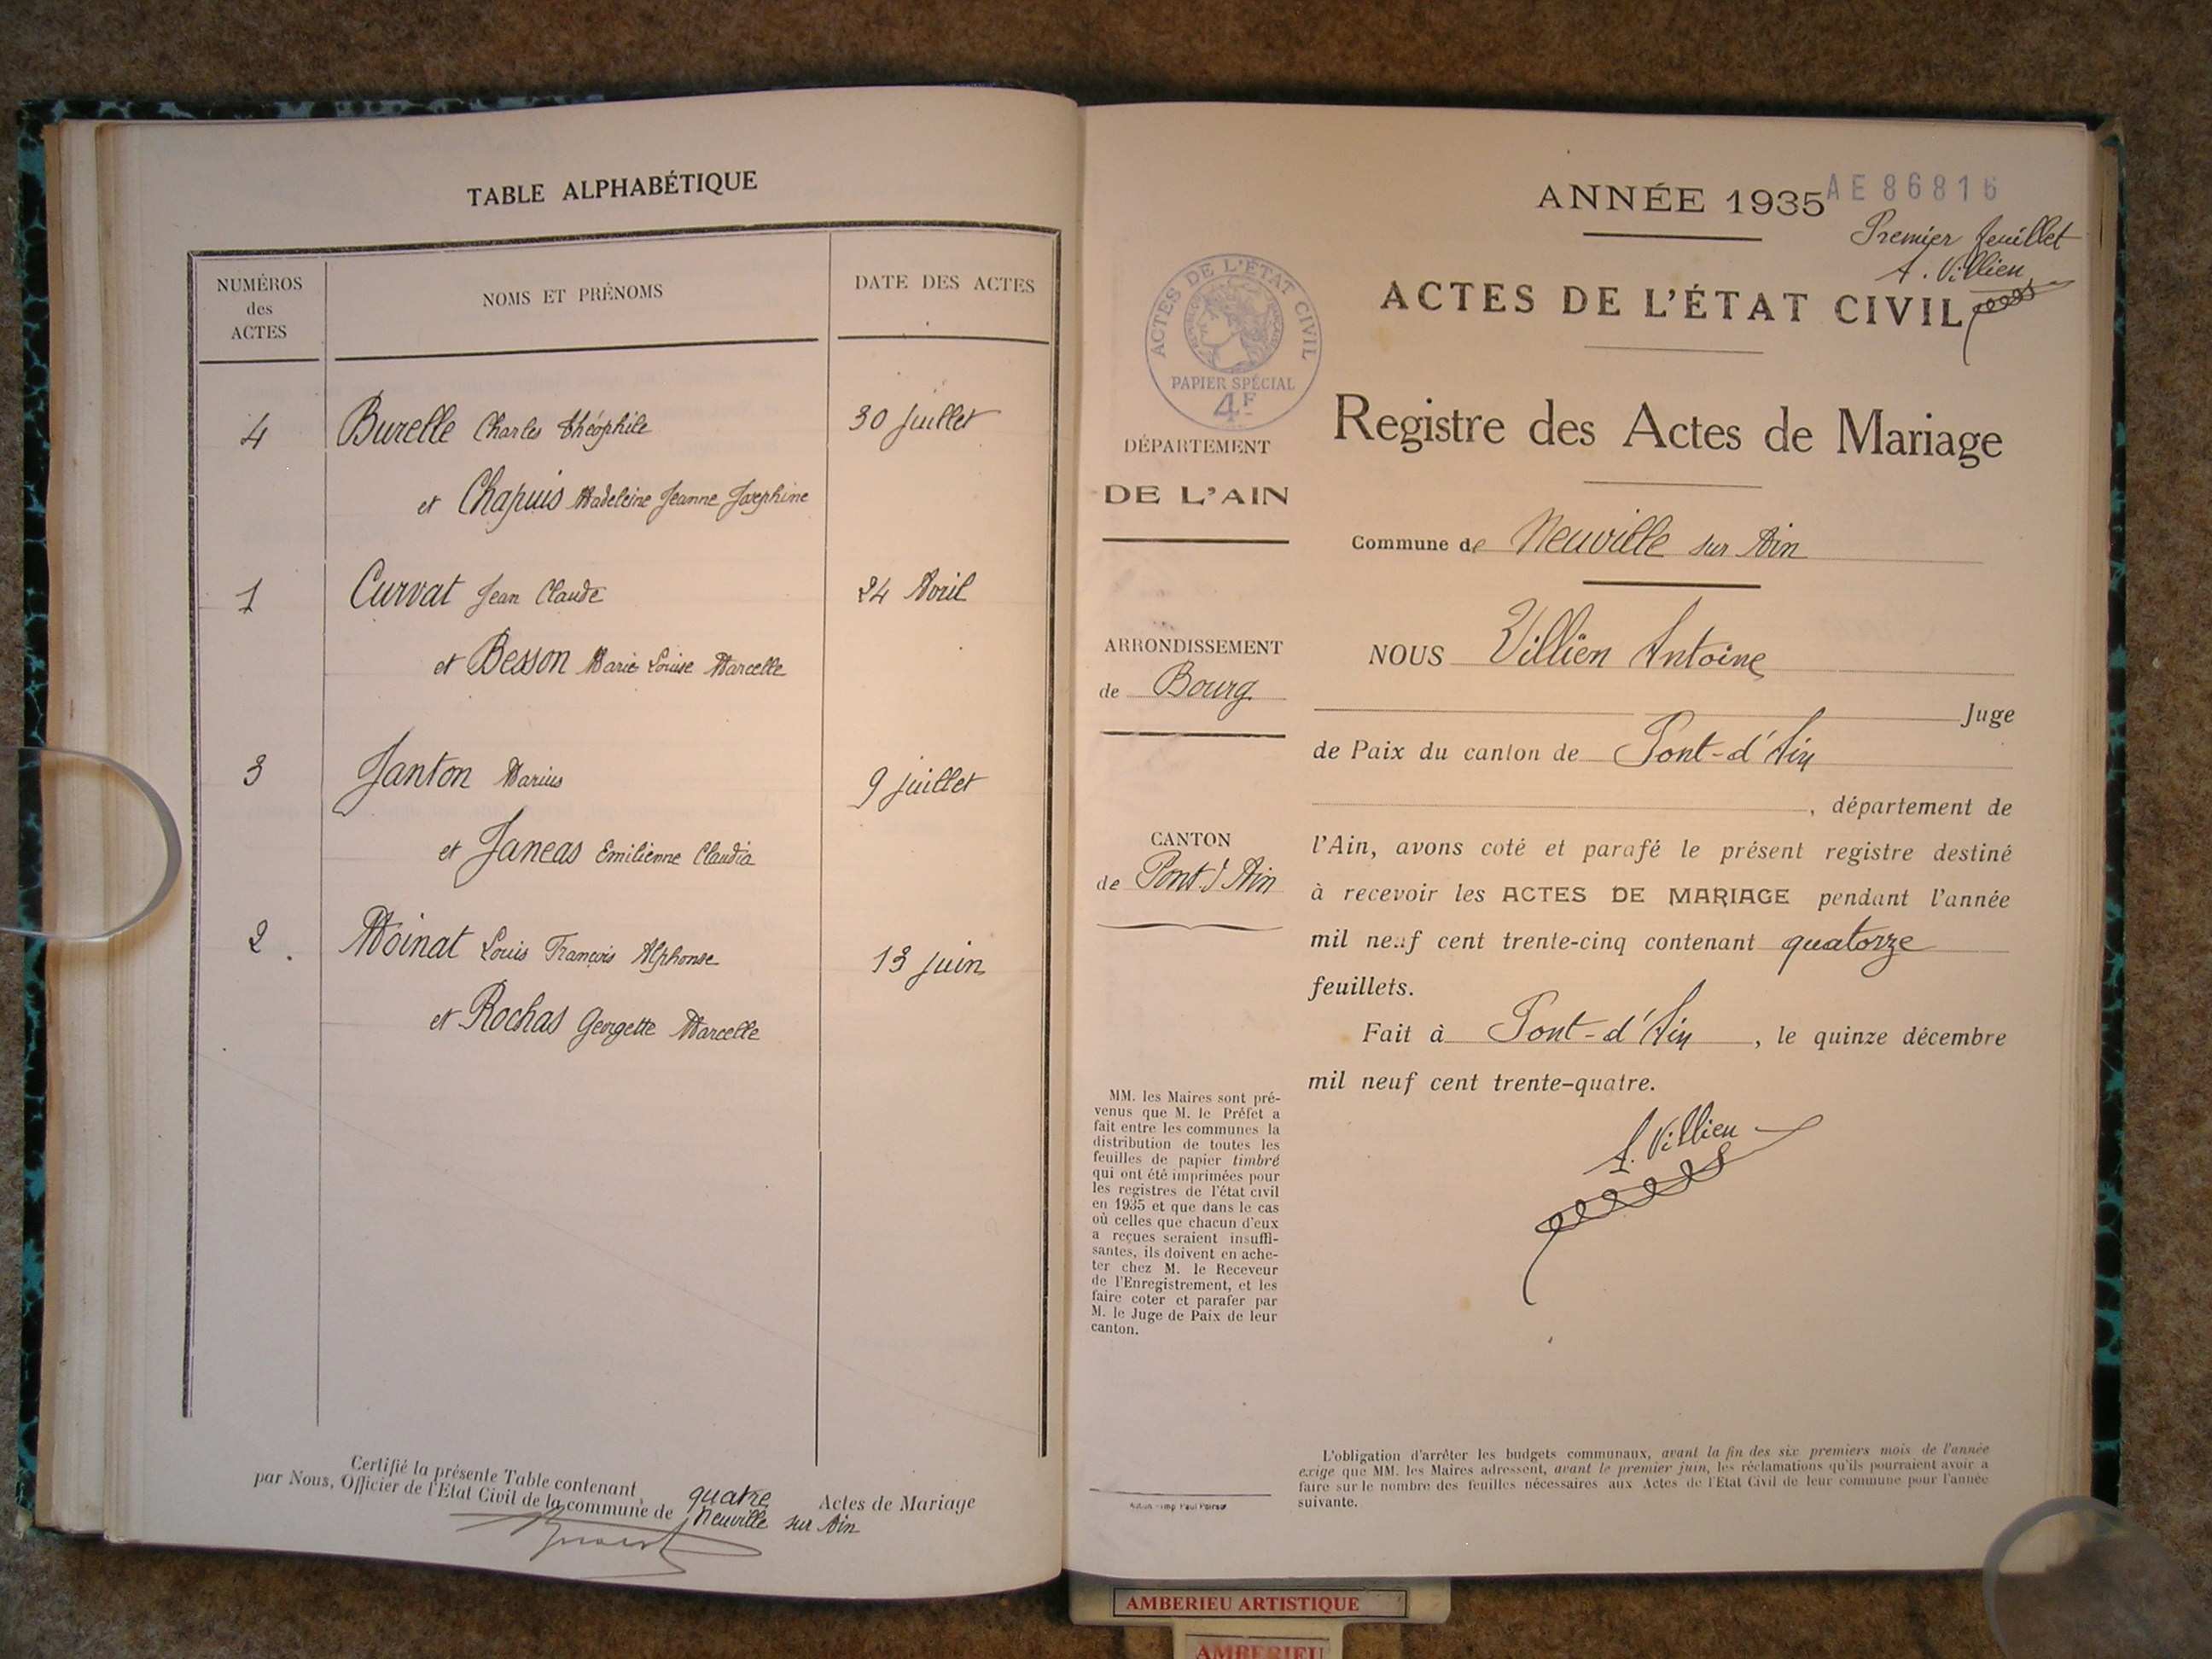 TABLE ALPHABÉTIQUE
NUMÉROS
des
ACTES
NOMS ET PRÉNOMS
DATE DES ACTES
4 Burelle Charles Théophile 30 Juillet
et Chapuis Madeleine Jeanne Josephine
1 Curvat Jean Claude 24 Avril
et Besson Marie Louise Marcelle
3 Janton Marius 9 juillet
et Janeas Emilienne Claudia
2. Moinat Louis François Alphonse 13 juin
et Rochas Georgette Marcelle
Certifié la présente Table contenant quatre Actes de Mariage
par Nous, Officier de l'Etat Civil de la commune de Neuville sur Ain
ANNÉE 1935
AE 86816
Premier feuillet
A. Villien
ACTES DE L'ÉTAT CIVIL
ACTES DE L'ÉTAT CIVIL
PAPIER SPÉCIAL
4F
Registre des Actes de Mariage
DÉPARTEMENT
DE L'AIN
Commune de Neuville sur Ain
ARRONDISSEMENT
de Bourg
CANTON
de Pont d'Ain
NOUS Villien Antoine
Juge
de Paix du canton de Pont-d'Ain
, département de
l'Ain, avons coté et parafé le présent registre destiné
à recevoir les ACTES DE MARIAGE pendant l'année
mil neuf cent trente-cinq contenant quatorze
feuillets.
Fait à Pont-d'Ain, le quinze décembre
mil neuf cent trente-quatre.
A. Villien
MM. les Maires sont pré-
venus que M. le Préfet a
fait entre les communes la
distribution de toutes les
feuilles de papier timbré
qui ont été imprimées pour
les registres de l'état civil
en 1935 et que dans le cas
où celles que chacun d'eux
a reçues seraient insuffi-
santes, ils doivent en ache-
ter chez M. le Receveur
de l'Enregistrement, et les
faire coter et parafer par
M. le Juge de Paix de leur
canton.
L'obligation d'arrêter les budgets communaux, avant la fin des six premiers mois de l'année
exige que MM. les Maires adressent, avant le premier juin, les réclamations qu'ils pourraient avoir a
faire sur le nombre des feuilles nécessaires aux Actes de l'Etat Civil de leur commune pour l'année
suivante.
AMBERIEU ARTISTIQUE
AMBERIEU